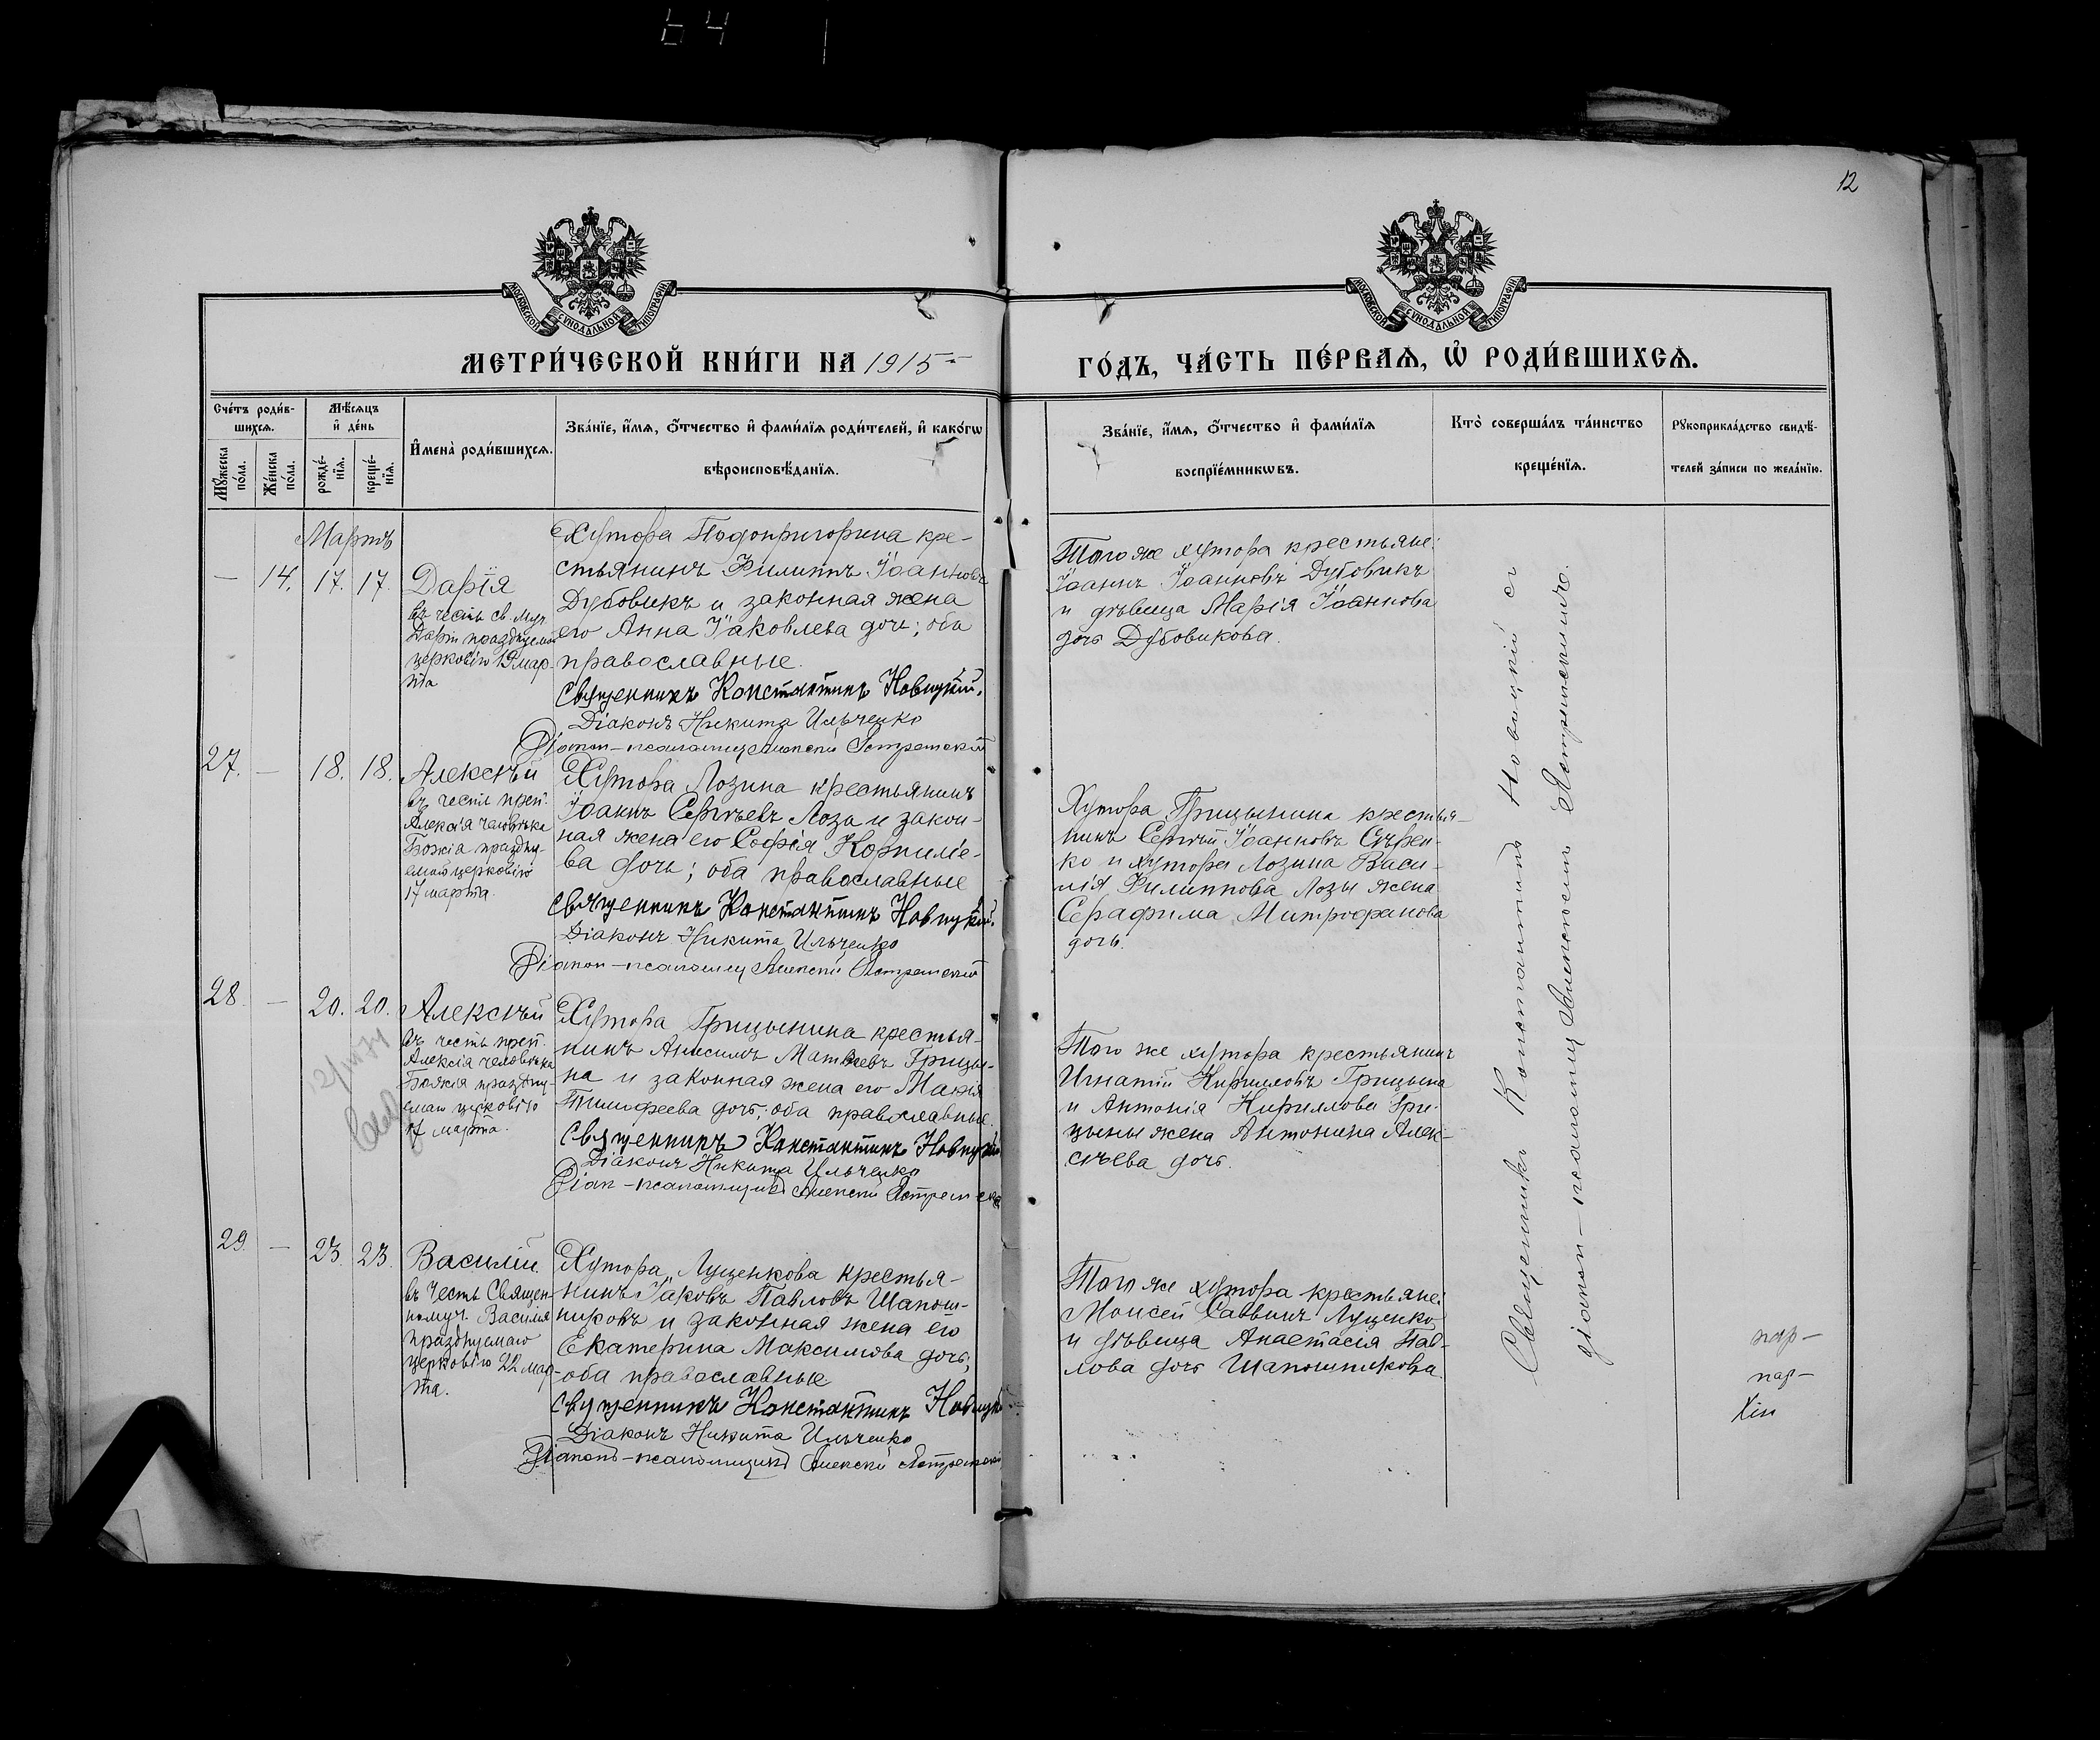 64
12
МОСКОВСКОЙ СѴНОДАЛЬНОЙ ТИПОГРАФІИ
МОСКОВСКОЙ СѴНОДАЛЬНОЙ ТИПОГРАФІИ
МЕТРИ́ЧЕСКОЙ КНИ́ГИ НА 1915
ГО́ДЪ, ЧА́СТЬ ПЕ́РВАѦ, Ѡ҆ РОДИ́ВШИХСѦ.
Сче́тъ роди́в-
шихсѧ.
Мꙋ́жеска по́ла.
Же́нска по́ла.
Мѣ́сѧцъ
и҆ де́нь
рожде́-
нїѧ.
креще́-
нїѧ.
И҆мена̀ роди́вшихсѧ.
Зва́нїе, и҆́мѧ, ѻ҆́тчество и҆ фами́лїѧ роди́телей, и҆ како́гѡ
вѣроисповѣ́данїѧ.
Зва́нїе, и҆́мѧ, ѻ҆́тчество и҆ фами́лїѧ
воспрїе́мникѡвъ.
Кто̀ соверша́лъ та́инство
креще́нїѧ.
Рꙋкоприкла́дство свидѣ́-
телей за́писи по жела́нїю.
Мартъ
— 14. 17. 17.
Дарія
въ честь св. муч.
Даріи празднуемой
церковію 19 мар-
та
Хутора Подопригорина кре-
стьянинъ Филиппъ Іоанновъ
Дубовикъ и законная жена
его Анна Іаковлева дочь; оба
православные.
Священникъ Константинъ Новицкій.
Діаконъ Никита Ильченко
Того же хутора крестьяне:
Іоаннъ Іоанновъ Дубовикъ
и дѣвица Марія Іоаннова
дочь Дубовикова.
27. — 18. 18.
Алексѣй
въ честь преп.
Алексія человѣка
Божія праздну-
емаго церковію
17 марта.
Хутора Лозина крестьянинъ
Іоаннъ Сергѣевъ Лоза и закон-
ная жена его Софія Корниліе-
ва дочь; оба православные
Священникъ Константинъ Новицкій.
Діаконъ Никита Ильченко
Хутора Грицынина крестья-
нинъ Сергѣй Іоанновъ Сѣрен-
ко и хутора Лозина Васи-
лія Филиппова Лозы жена
Серафима Митрофанова
дочь.
28. — 20. 20.
Алексѣй
въ честь преп.
Алексія человѣка
Божія праздну-
емаго церковію
17 марта.
Хутора Грицынина крестья-
нинъ Анисимъ Матвѣевъ Грицы-
на и законная жена его Марія
Тимофеева дочь; оба православные.
Священникъ Константинъ Новицкій
Діаконъ Никита Ильченко
Того же хутора крестьянинъ
Игнатій Кирилловъ Грицына
и Антонія Кириллова Гри-
цыны жена Антонина Алек-
сѣева дочь.
29. — 23. 23.
Василій
въ честь Священ-
номуч. Василія
празднуемаго
церковію 22 мар-
та.
Хутора Луценкова крестья-
нинъ Іаковъ Павловъ Шапош-
никовъ и законная жена его
Екатерина Максимова дочь;
оба православные
Священникъ Константинъ Новицкій
Діаконъ Никита Ильченко
Того же хутора крестьяне:
Моисей Саввинъ Луценко
и дѣвица Анастасія Пав-
лова дочь Шапошникова.
Священникъ Константинъ Новицкій съ